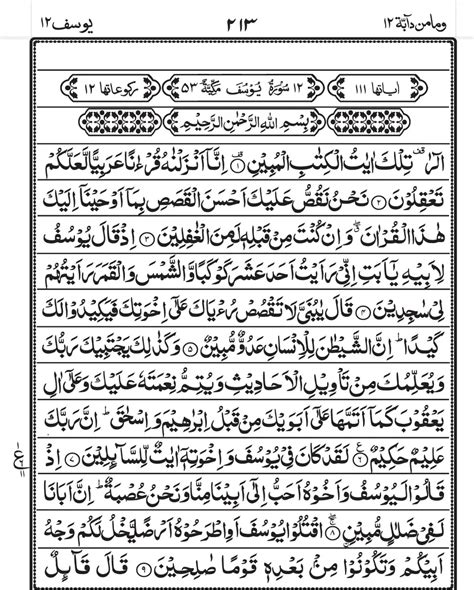 وما من دآبة ١٢ ٢١٣ يوسف ١٢
اٰیاتها ١١١ ١٢ سُوْرَةُ يُوْسُفَ مَكِّيَّةٌ ٥٣ ركوعاتها ١٢
بِسْمِ اللّٰهِ الرَّحْمٰنِ الرَّحِيْمِ
الٓرٰ ۫ تِلْكَ اٰيٰتُ الْكِتٰبِ الْمُبِيْنِ ۟۱ اِنَّاۤ اَنْزَلْنٰهُ قُرْءٰنًا عَرَبِيًّا لَّعَلَّكُمْ
تَعْقِلُوْنَ ۲ نَحْنُ نَقُصُّ عَلَيْكَ اَحْسَنَ الْقَصَصِ بِمَاۤ اَوْحَيْنَاۤ اِلَيْكَ
هٰذَا الْقُرْاٰنَ ۖۗ وَاِنْ كُنْتَ مِنْ قَبْلِهٖ لَمِنَ الْغٰفِلِيْنَ ۳ اِذْ قَالَ يُوْسُفُ
لِاَبِيْهِ يٰۤاَبَتِ اِنِّيْ رَاَيْتُ اَحَدَ عَشَرَ كَوْكَبًا وَّالشَّمْسَ وَالْقَمَرَ رَاَيْتُهُمْ
لِيْ سٰجِدِيْنَ ۴ قَالَ يٰبُنَيَّ لَا تَقْصُصْ رُءْيَاكَ عَلٰۤى اِخْوَتِكَ فَيَكِيْدُوْا لَكَ
كَيْدًا ؕ اِنَّ الشَّيْطٰنَ لِلْاِنْسَانِ عَدُوٌّ مُّبِيْنٌ ۵ وَكَذٰلِكَ يَجْتَبِيْكَ رَبُّكَ
وَيُعَلِّمُكَ مِنْ تَاْوِيْلِ الْاَحَادِيْثِ وَيُتِمُّ نِعْمَتَهٗ عَلَيْكَ وَعَلٰۤى اٰلِ
يَعْقُوْبَ كَمَاۤ اَتَمَّهَا عَلٰۤى اَبَوَيْكَ مِنْ قَبْلُ اِبْرٰهِيْمَ وَاِسْحٰقَ ؕ اِنَّ رَبَّكَ
عَلِيْمٌ حَكِيْمٌ ۶ لَقَدْ كَانَ فِيْ يُوْسُفَ وَاِخْوَتِهٖۤ اٰيٰتٌ لِّلسَّآىِٕلِيْنَ ۷ اِذْ
قَالُوْا لَيُوْسُفُ وَاَخُوْهُ اَحَبُّ اِلٰۤى اَبِيْنَا مِنَّا وَنَحْنُ عُصْبَةٌ ؕ اِنَّ اَبَانَا
لَفِيْ ضَلٰلٍ مُّبِيْنِ ۸ اقْتُلُوْا يُوْسُفَ اَوِ اطْرَحُوْهُ اَرْضًا يَّخْلُ لَكُمْ وَجْهُ
اَبِيْكُمْ وَتَكُوْنُوْا مِنْۢ بَعْدِهٖ قَوْمًا صٰلِحِيْنَ ۹ قَالَ قَآىِٕلٌ